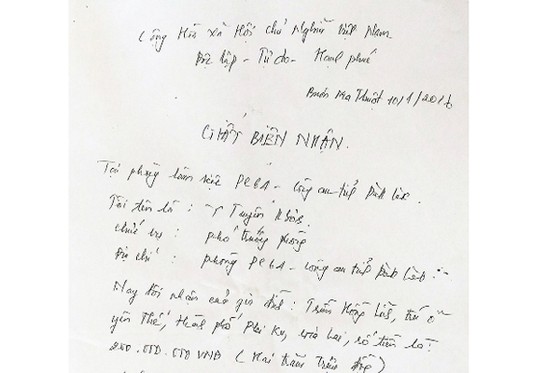 Cộng Hòa xã Hội chủ Nghĩa Việt Nam
Độc lập - Tự do - Hạnh phúc
Buôn Ma Thuột 10/1/2016
GIẤY BIÊN NHẬN.
Tại phòng làm việc PC61 - công an tỉnh Đắk Lắk.
Tôi tên là : Tuyến
chức vụ : phó trưởng phòng
Địa chỉ : phòng PC61 - công an tỉnh Đắk Lắk
Nay tôi nhận của gia đình : Trần Hồng trú ở
yên Thế, thành phố Plei Ku, Gia Lai, số tiền là:
200.000.000 VNĐ ( Hai trăm triệu đồng )